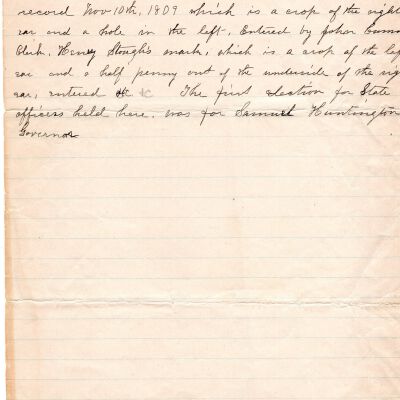 record Nov 10th, 1809 which is a crop of the right
ear and a hole in the left. Entered by John
Clerk. Henry Stough's mark, which is a crop of the lef
ear and a half penny out of the underside of the rig
ear, entered &c The first election for State
officers held here, was for Samuel Huntington
Governor